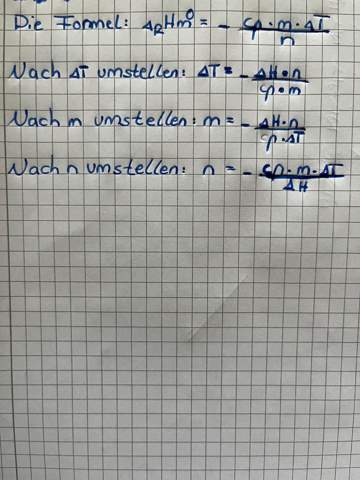 Die Formel: ΔRHm⁰ = - cp · m · ΔT / n
Nach ΔT umstellen: ΔT = - ΔH · n / cp · m
Nach m umstellen: m = - ΔH · n / cp · ΔT
Nach n umstellen: n = - cp · m · ΔT / ΔH